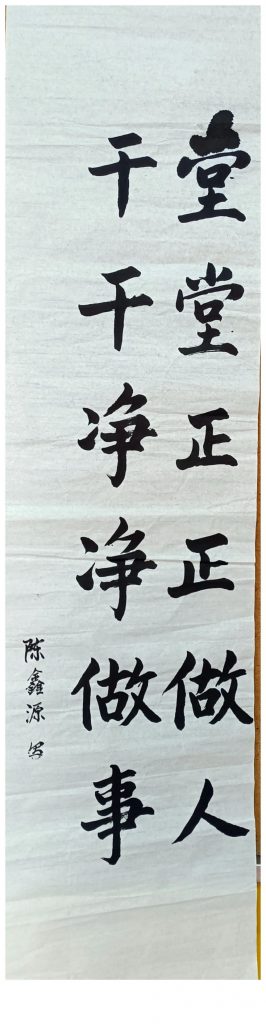 堂堂正正做人
干干净净做事
陈鑫源写